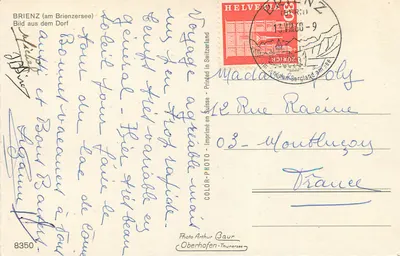 BRIENZ (am Brienzersee)
Bild aus dem Dorf
Voyage agréable mais
un peu trop rapide.
Temps très variable en
général - Hier très beau
soleil pour faire le
tour du lac de Côme
Bonnes vacances à tous
et Bons Baisers
8350
COLOR-PHOTO - Imprimé en Suisse - Printed in Switzerland
Photo Arthur Baur
Oberhofen-Thunersee
HELVETIA
80
ZÜRICH
BRIENZ
-9
Madame
12 Rue Racine
03 - Montluçon
France